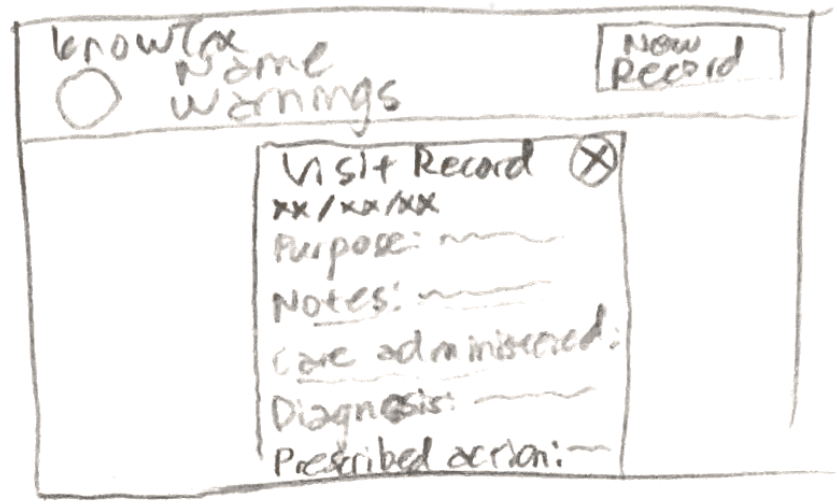 KnowTrx
Name
Warnings
New
Record
Visit Record X
xx/xx/xx
Purpose:
Notes:
Care administered:
Diagnosis:
Prescribed action: